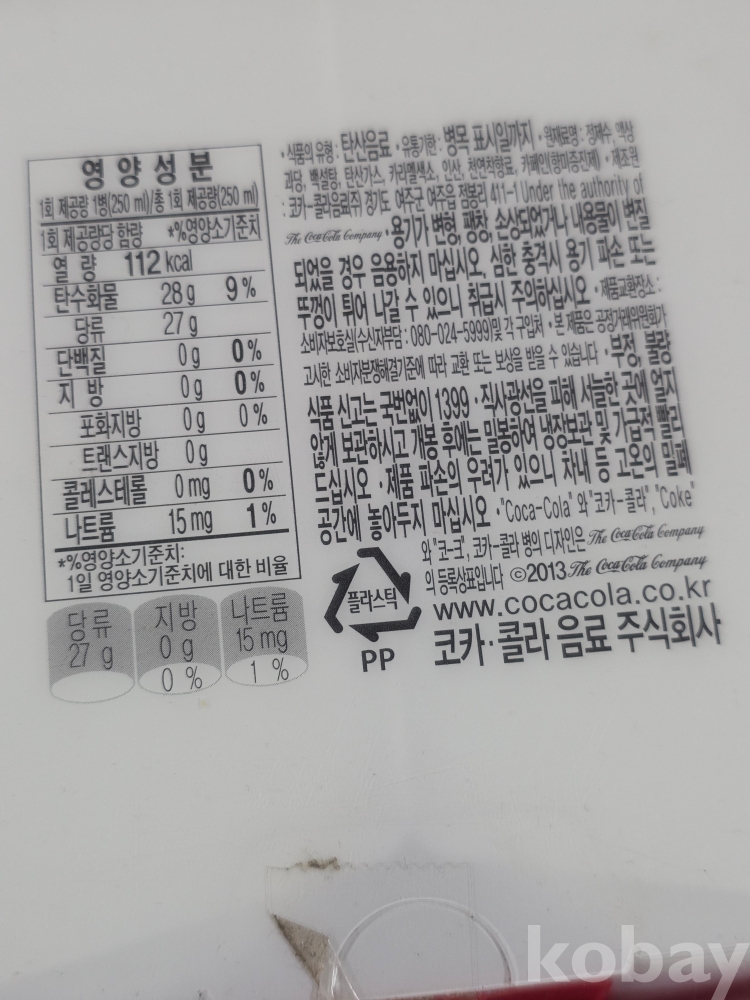 영양성분
1회 제공량 1병(250 ml)/총 1회 제공량(250 ml)
1회 제공량당 함량 *%영양소기준치
열 량 112 kcal
탄수화물 28 g 9 %
당류 27 g
단백질 0 g 0 %
지 방 0 g 0 %
포화지방 0 g 0 %
트랜스지방 0 g
콜레스테롤 0 mg 0 %
나트륨 15 mg 1 %
*%영양소기준치:
1일 영양소기준치에 대한 비율
당류 지방 나트륨
27 g 0 g 15 mg
0 % 1 %
•식품의 유형: 탄산음료 •유통기한: 병목 표시일까지 •원재료명: 정제수, 액상
과당, 백설탕, 탄산가스, 카라멜색소, 인산, 천연착향료, 카페인(향미증진제) •제조원
: 코카-콜라음료㈜ 경기도 여주군 여주읍 점봉리 411-1 Under the authority of
The Coca-Cola Company •용기가 변형, 팽창, 손상되었거나 내용물이 변질
되었을 경우 음용하지 마십시오. 심한 충격시 용기 파손 또는
뚜껑이 튀어 나갈 수 있으니 취급시 주의하십시오 •제품교환장소:
소비자보호실(수신자부담: 080-024-5999)및 각 구입처 •본 제품은 공정거래위원회가
고시한 소비자분쟁해결기준에 따라 교환 또는 보상을 받을 수 있습니다 •부정, 불량
식품 신고는 국번없이 1399 •직사광선을 피해 서늘한 곳에 얼지
않게 보관하시고 개봉 후에는 밀봉하여 냉장보관 및 가급적 빨리
드십시오 •제품 파손의 우려가 있으니 차내 등 고온의 밀폐
공간에 놓아두지 마십시오 •"Coca-Cola" 와 "코카-콜라", "Coke"
와 "코-크", 코카-콜라 병의 디자인은 The Coca-Cola Company
의 등록상표입니다 ©2013 The Coca-Cola Company
www.cocacola.co.kr
코카·콜라 음료 주식회사
플라스틱
PP
kobay